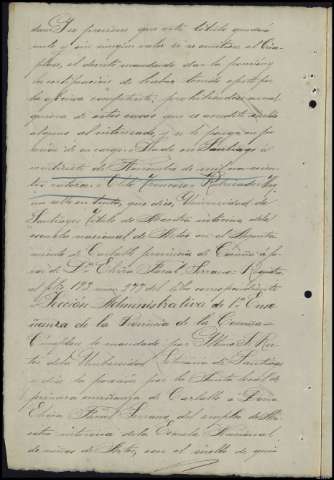 dano. Se previene que este título quedará
nulo y sin ningún valor si se omitiese el Cúm-
plase, el decreto mandando dar la posesión y
la certificación de haber tenido efecto por
la oficina competente, prohibiéndose en cual
quiera de estos casos que se acredite sueldo
alguno al interesado y se le ponga en po-
sesión de su cargo. Dado en Santiago á
veintisiete de Noviembre de mil novecien-
tos catorce = Cleto Troncoso =
Universidad de
Santiago, título de Maestra interina de la
escuela nacional de niños en el Ayunta
miento de Carballo provincia de Coruña á fa-
vor de Dª Elvira Serrano = Registro
al fº 192 núm 277 del libro correspondiente =
Sección Administrativa de 1ª Ense
ñanza de la Provincia de la Coruña =
Cúmplase lo mandado por Iltmo S. Rec
tor de la Universidad Literaria de Santiago
y dése la posesión por la Junta local de
primera enseñanza de Carballo a Doña
Elvira Serrano, del empleo de Ma
estra interina de la Escuela Nacional
de niños de con el sueldo de quin